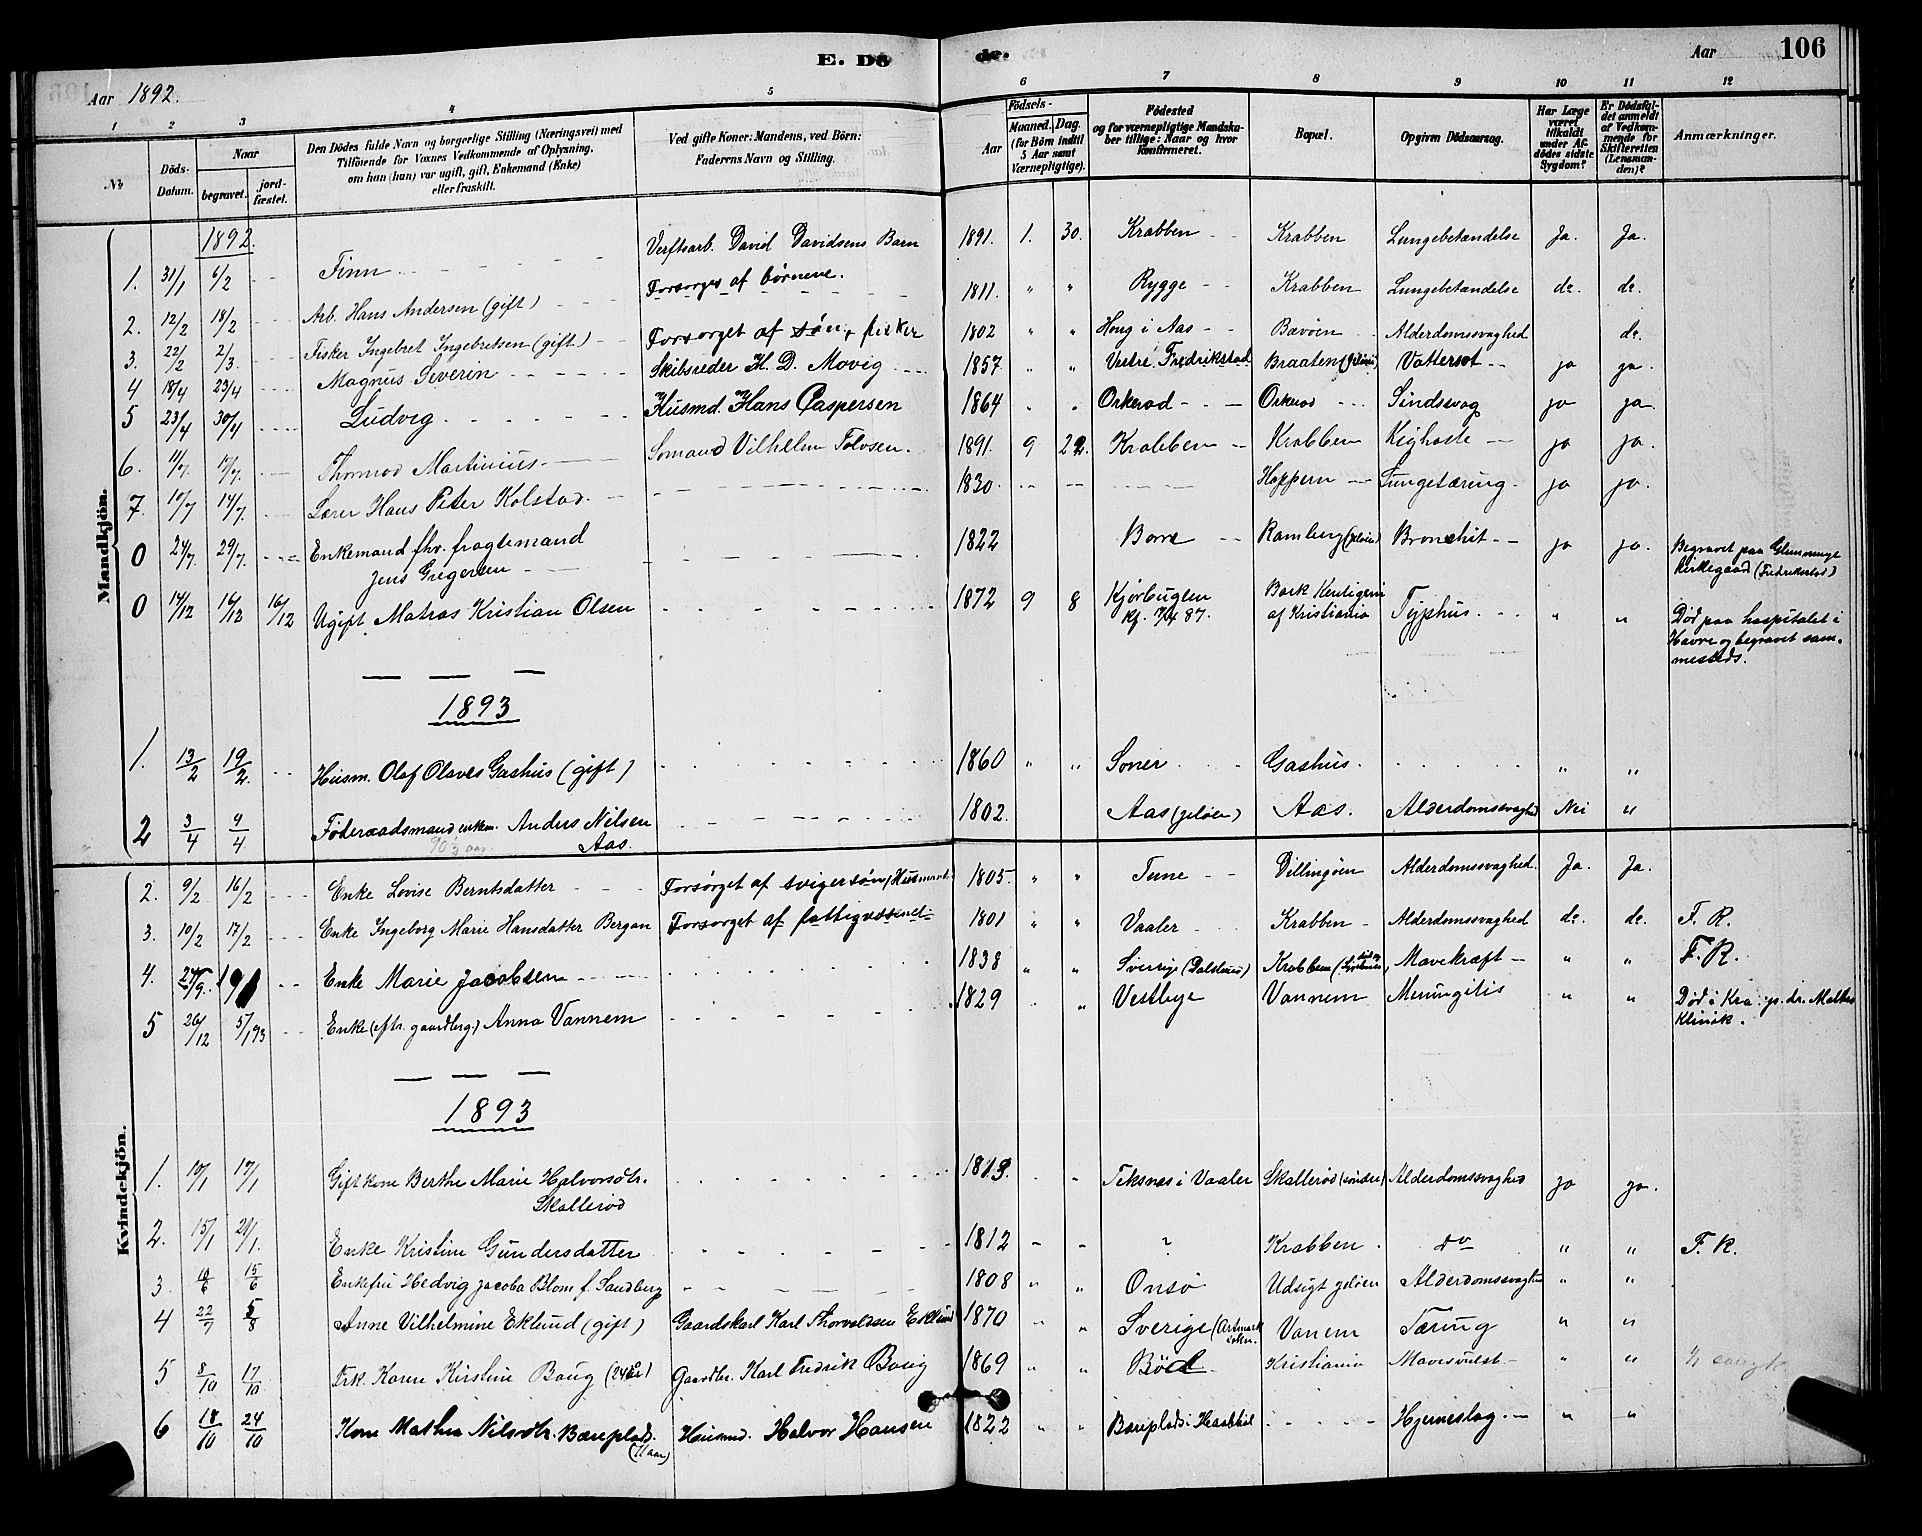 E. Dö de.
Aar 106
Aar 1892.
1 2 3 4 5 6 7 8 9 10 11 12
No
Döds-Datum.
Naar
begravet.
jordfæstet.
Den Dödes fulde Navn og borgerlige Stilling (Næringsvei) med
Tilföiende for Voxnes Vedkommende af Oplysning,
om han (hun) var ugift, gift, Enkemand (Enke)
eller fraskilt.
Ved gifte Koner: Mandens, ved Börn:
Faderens Navn og Stilling.
Födsels-
Aar
Maaned. Dag.
(for Börn indtil
5 Aar samt
Værnepligtige).
Födested
og for værnepligtige Mandskaber
tillige: Naar og hvor
Konfirmeret.
Bopæl.
Opgiven Dödsaarsag.
Har Læge
været
tilkaldt
under Afdödes
sidste
Sygdom?
Er Dödsfaldet
anmeldt
af Vedkommende
for
Skifteretten
(Lensmanden)?
Anmærkninger.
Mandkjön.
1892.
1. 31/1 6/2 Finn Verftsarb. David Davidsens Barn 1891. 1. 30. Krabben Krabben Lungebetændelse Ja. Ja.
2. 12/2 18/2 Arb. Hans Andersen (gift) Forsørges af børnene. 1811. " " Rygge Krabben Lungebetændelse do. do.
3. 22/2 2/3 Fisker Ingebret Ingebretsen (gift) Forsørget af søn, fisker 1802 " " Haug i Aas Bævøen Alderdomssvaghed do.
4 18/4 23/4 Magnus Severin Skibsreder H. D. Movig 1857 " " Vestre Fredrikstad Braaten (Jeløen) Vattersot ja ja.
5 23/4 30/4 Ludvig Husmd. Hans Caspersen 1864 Orkerød Orkerød Sindssvag ja ja
6. 11/7. 17/7. Thormod Martinius Sømand Vilhelm Tolvsen. 1891. 9 22. Krabben Krabben Kighoste ja ja.
7. 10/7 14/7. Lærer Hans Peter Kolstad 1830. Hoppern Lungetæring ja ja.
0 24/7. 29/7. Enkemand fhv. fragtemand
Jens Gregersen 1822 Borre Ramberg (Jeløen) Bronchit ja ja. Begravet paa Glemminge
kirkegaard (Fredrikstad)
0 14/12 16/12 16/12 Ugift Matros Kristian Olsen 1872 9 8 Kjørbugten
kf. 7/4 87. Bark Kentigern
af Kristiania Typhus " " Død paa hospitalet i
Havre og begravet sammesteds.
1893
1. 13/2 19/2 Husm. Olaf Olaves Gashus (gift) 1860 " " Soner Gashus. " "
2 3/4 9/4 Føderaadsmand enkem. Anders Nilsen
Aas. 1802. Aas (Jeløen) Aas. Alderdomssvaghed Nei "
Kvindekjön.
2. 9/2 16/2 Enke Lovise Berntsdatter Forsørget af svigersøn, Husmand. 1805. " " Tune Dillingøen Alderdomssvaghed Ja. Ja.
3. 10/2 17/2 Enke Ingeborg Marie Hansdatter Bergan Forsørget af fattigvæsenet 1801 " " Vaaler Krabben Alderdomssvaghed do. do. F. R.
4. 24/9. Enke Marie Jacobsen 1838 " " Sverrige (Dalsland) Krabben Mavekræft " " F. R.
5 26/12 5/1 93 Enke (eftr. gaardbrg.) Anna Vannem 1829 " Vestbye Vannem Meningitis " " Død i Kra. pr. dr. Malthes
Klinik.
1893
1. 10/1 17/1 Gift kone Berthe Marie Halvorsdtr.
Skallerød 1813. Teksnæs i Vaaler Skallerød (søndre) Alderdomssvaghed ja ja.
2. 15/1 21/1. Enke Kristine Gundersdatter 1812 ? Krabben do " " F. R.
3. 10/6 15/6 Enkefru Hedvig Jacoba Blom f. Sandberg 1808 " " Onsø Udsigt Jeløen Alderdomssvaghed " "
4 22/7 5/8 Anne Vilhelmine Eklund (gift) Gaardskarl Karl Thorvaldsen Eklund 1870 " " Sverige (Artmark
sokn. Vanem Tæring " "
5 8/10 17/10 Frk. Karen Kirstine Baug (24 år) Gaardbr. Karl Fredrik Baug 1869 " " Bød Kristiania Mavesvulst " "
6 18/10 24/10 Kone Mathea Nilsdtr. Bæreplads.
(71 aar) Husmd. Halvor Hansen 1822 " " Bæreplads i Hjerneslag " "